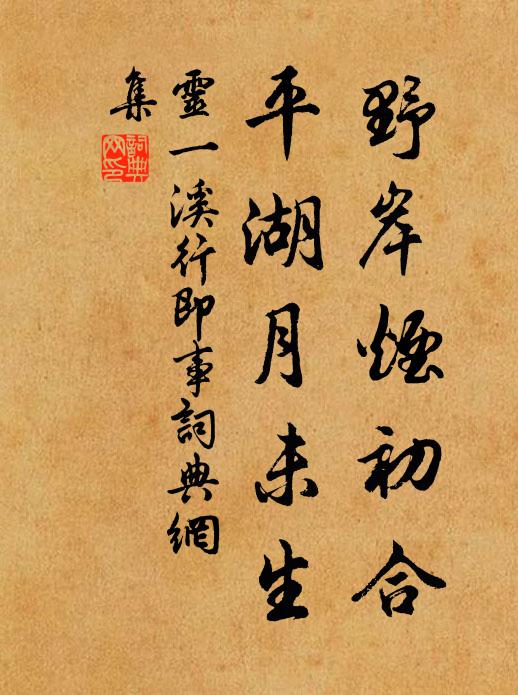 野岸煙初合
平湖月未生
靈一溪行即事詞典網
集
詞典網印